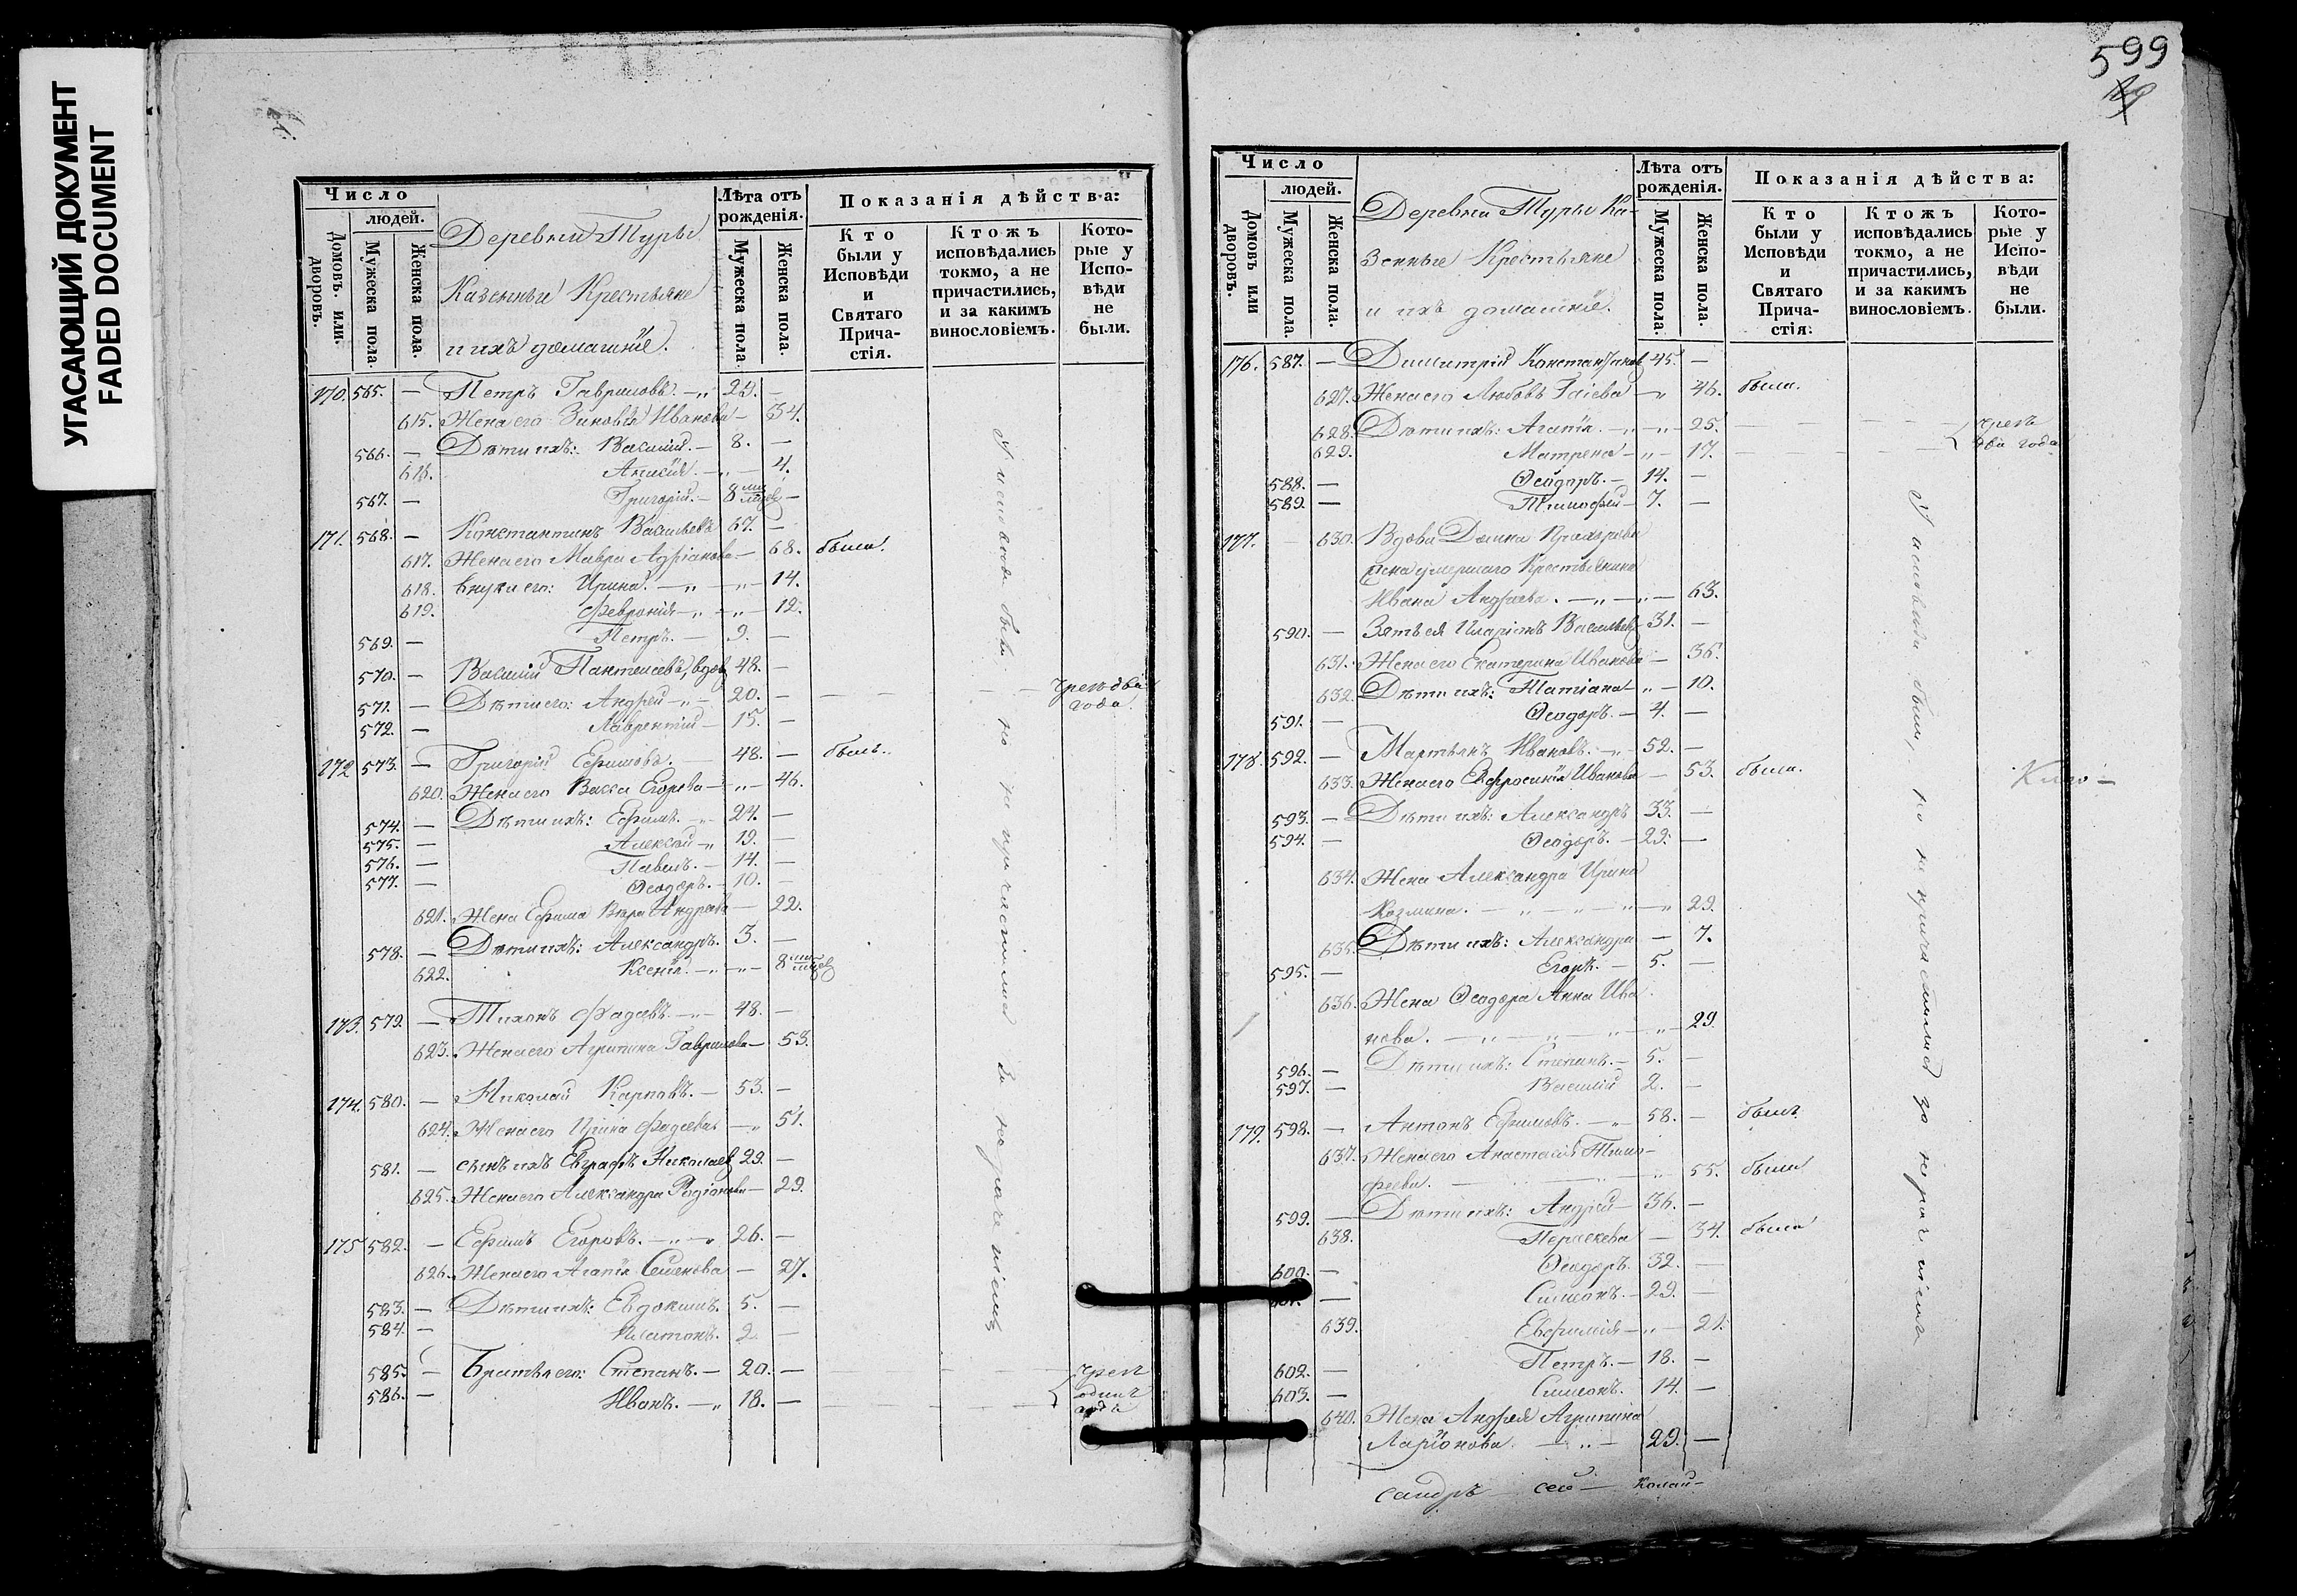 УГАСАЮЩИЙ ДОКУМЕНТ
FADED DOCUMENT
Число
людей.
Домовъ или дворовъ.
Мужеска пола.
Женска пола.
Деревни Туры
Казенныи Крестьяне
и ихъ домашніе.
Лѣта отъ рожденія.
Мужеска пола.
Женска пола.
Показанія дѣйства:
Кто были у Исповѣди и Святаго Прича- стія.
Ктожъ исповѣдались токмо, а не причастились, и за какимъ винословіемъ.
Кото- рые у Испо- вѣди не были.
170. 565. — Петръ Гавриловъ. — „ 23. —
615. Жена его Зиновья Иванова — 34.
566. — Дѣти ихъ: Василій. — 8. —
616. — „ — 4.
567. — Григорій. — 8 —
171. 568. — Константинъ Васильевъ 67. —
617. Жена его Мавра Адріанова — 68. была.
618. внуки его: Ирина. — „ — „ — 14.
619. Февронія — „ — „ — 12.
569. — Петръ. — 9. —
570. — Василій Пантелеевъ, вдов 48. —
571. — Дѣти его: Андрей — „ — 20. — — — — — чрезъ два года
572. — Лаврентій — 15. —
172 573. — Григорій Ефимовъ. — 48. — былъ.
620. Жена его Васса Егорова — „ — 46.
574. — Дѣти ихъ: Ефимъ. — „ 24. —
575. — Алексѣй — „ 19. —
576. — Павелъ. — 14. —
577. — Ѳеодоръ. — 10. —
621. Жена Ефима Вѣра Андреева — 22.
578. — Дѣти ихъ: Александръ. 3. —
622. Ксенія. — „ — „ — 8
173. 579. — Тихонъ Фадѣевъ. — „ — 48. —
623. Жена его Агрипина Гаврилова — 53.
174. 580. — Николай Карповъ. — 53. —
624. Жена его Ирина Фадеева — „ 51.
581. — сынъ ихъ Евграфъ Николаев 29. —
625. Жена его Александра Родіонова — 29.
175 582. — Ефимъ Егоровъ. — „ — „ 26. —
626. Жена его Агапія Семенова — 27.
583. — Дѣти ихъ: Евдокимъ. 5. —
584. — Платонъ. 2. —
585. — Братья его: Степанъ. — 20. — — — — чрезъ
586. — Иванъ. — „ 18. — — — — одинъ годъ
У исповѣди были но не причастились за нераченіемъ
599
Число
людей.
Домовъ или дворовъ.
Мужеска пола.
Женска пола.
Деревни Туры Ка-
зенные Крестьяне
и ихъ домашніе.
Лѣта отъ рожденія.
Мужеска пола.
Женска пола.
Показанія дѣйства:
Кто были у Исповѣди и Святаго Прича- стія.
Ктожъ исповѣдались токмо, а не причастились, и за какимъ винословіемъ.
Кото- рые у Испо- вѣди не были.
176. 587. — Димитрій Константинов 45. —
627. Жена его Любовь Гаіева — „ 46. была.
628. Дѣти ихъ: Агапія. — „ — „ — 25. — — — — чрезъ
629. Матрена — „ — 17. — — — — два года
588. — Ѳеодоръ. — 14. —
589. — Тимофей — 7. —
177. 630. Вдова Домна
жена умершаго Крестьянина
Ивана Андреева. — „ — „ — 63.
590. — Зять ея Иларіонъ Васильев 31. —
631. Жена его Екатерина Иванова — 36.
632. Дѣти ихъ: Татіана — „ — 10.
591. — Ѳеодоръ. — 4. —
178. 592. — Мартьянъ Ивановъ. — „ — 52. —
633. Жена его Евфросинія Иванова — 53. была.
593. — Дѣти ихъ: Александръ 33. —
594. — Ѳеодоръ. — 29. —
634. Жена Александра Ирина
Козмина. — „ — „ — „ — „ 29.
635. Дѣти ихъ: Александра — 7.
595. — Егоръ. — 5. —
636. Жена Ѳеодора Анна Ива
нова. — „ — „ — „ — „ — 29
596. — Дѣти ихъ: Степанъ. — 5. —
597. — Василій 2. —
179. 598. — Антонъ Ефимовъ. — „ — 58. — былъ
637. Жена его Анастасія Тимо-
феева. — „ — „ 55. была
599. — Дѣти ихъ: Андрей — 36. —
638. Параскева — 34. была
600. — Ѳеодоръ 32. —
601. — Симеонъ. — 29. —
639. Евфимія — „ — 21.
602. — Петръ. — 18. —
603. — Симеонъ. 14. —
640. Жена Андрея Агрипина
Ларіонова. — „ — 29. —
У исповѣди были, но не причастились за нераченіемъ
сандръ — сей — колай —